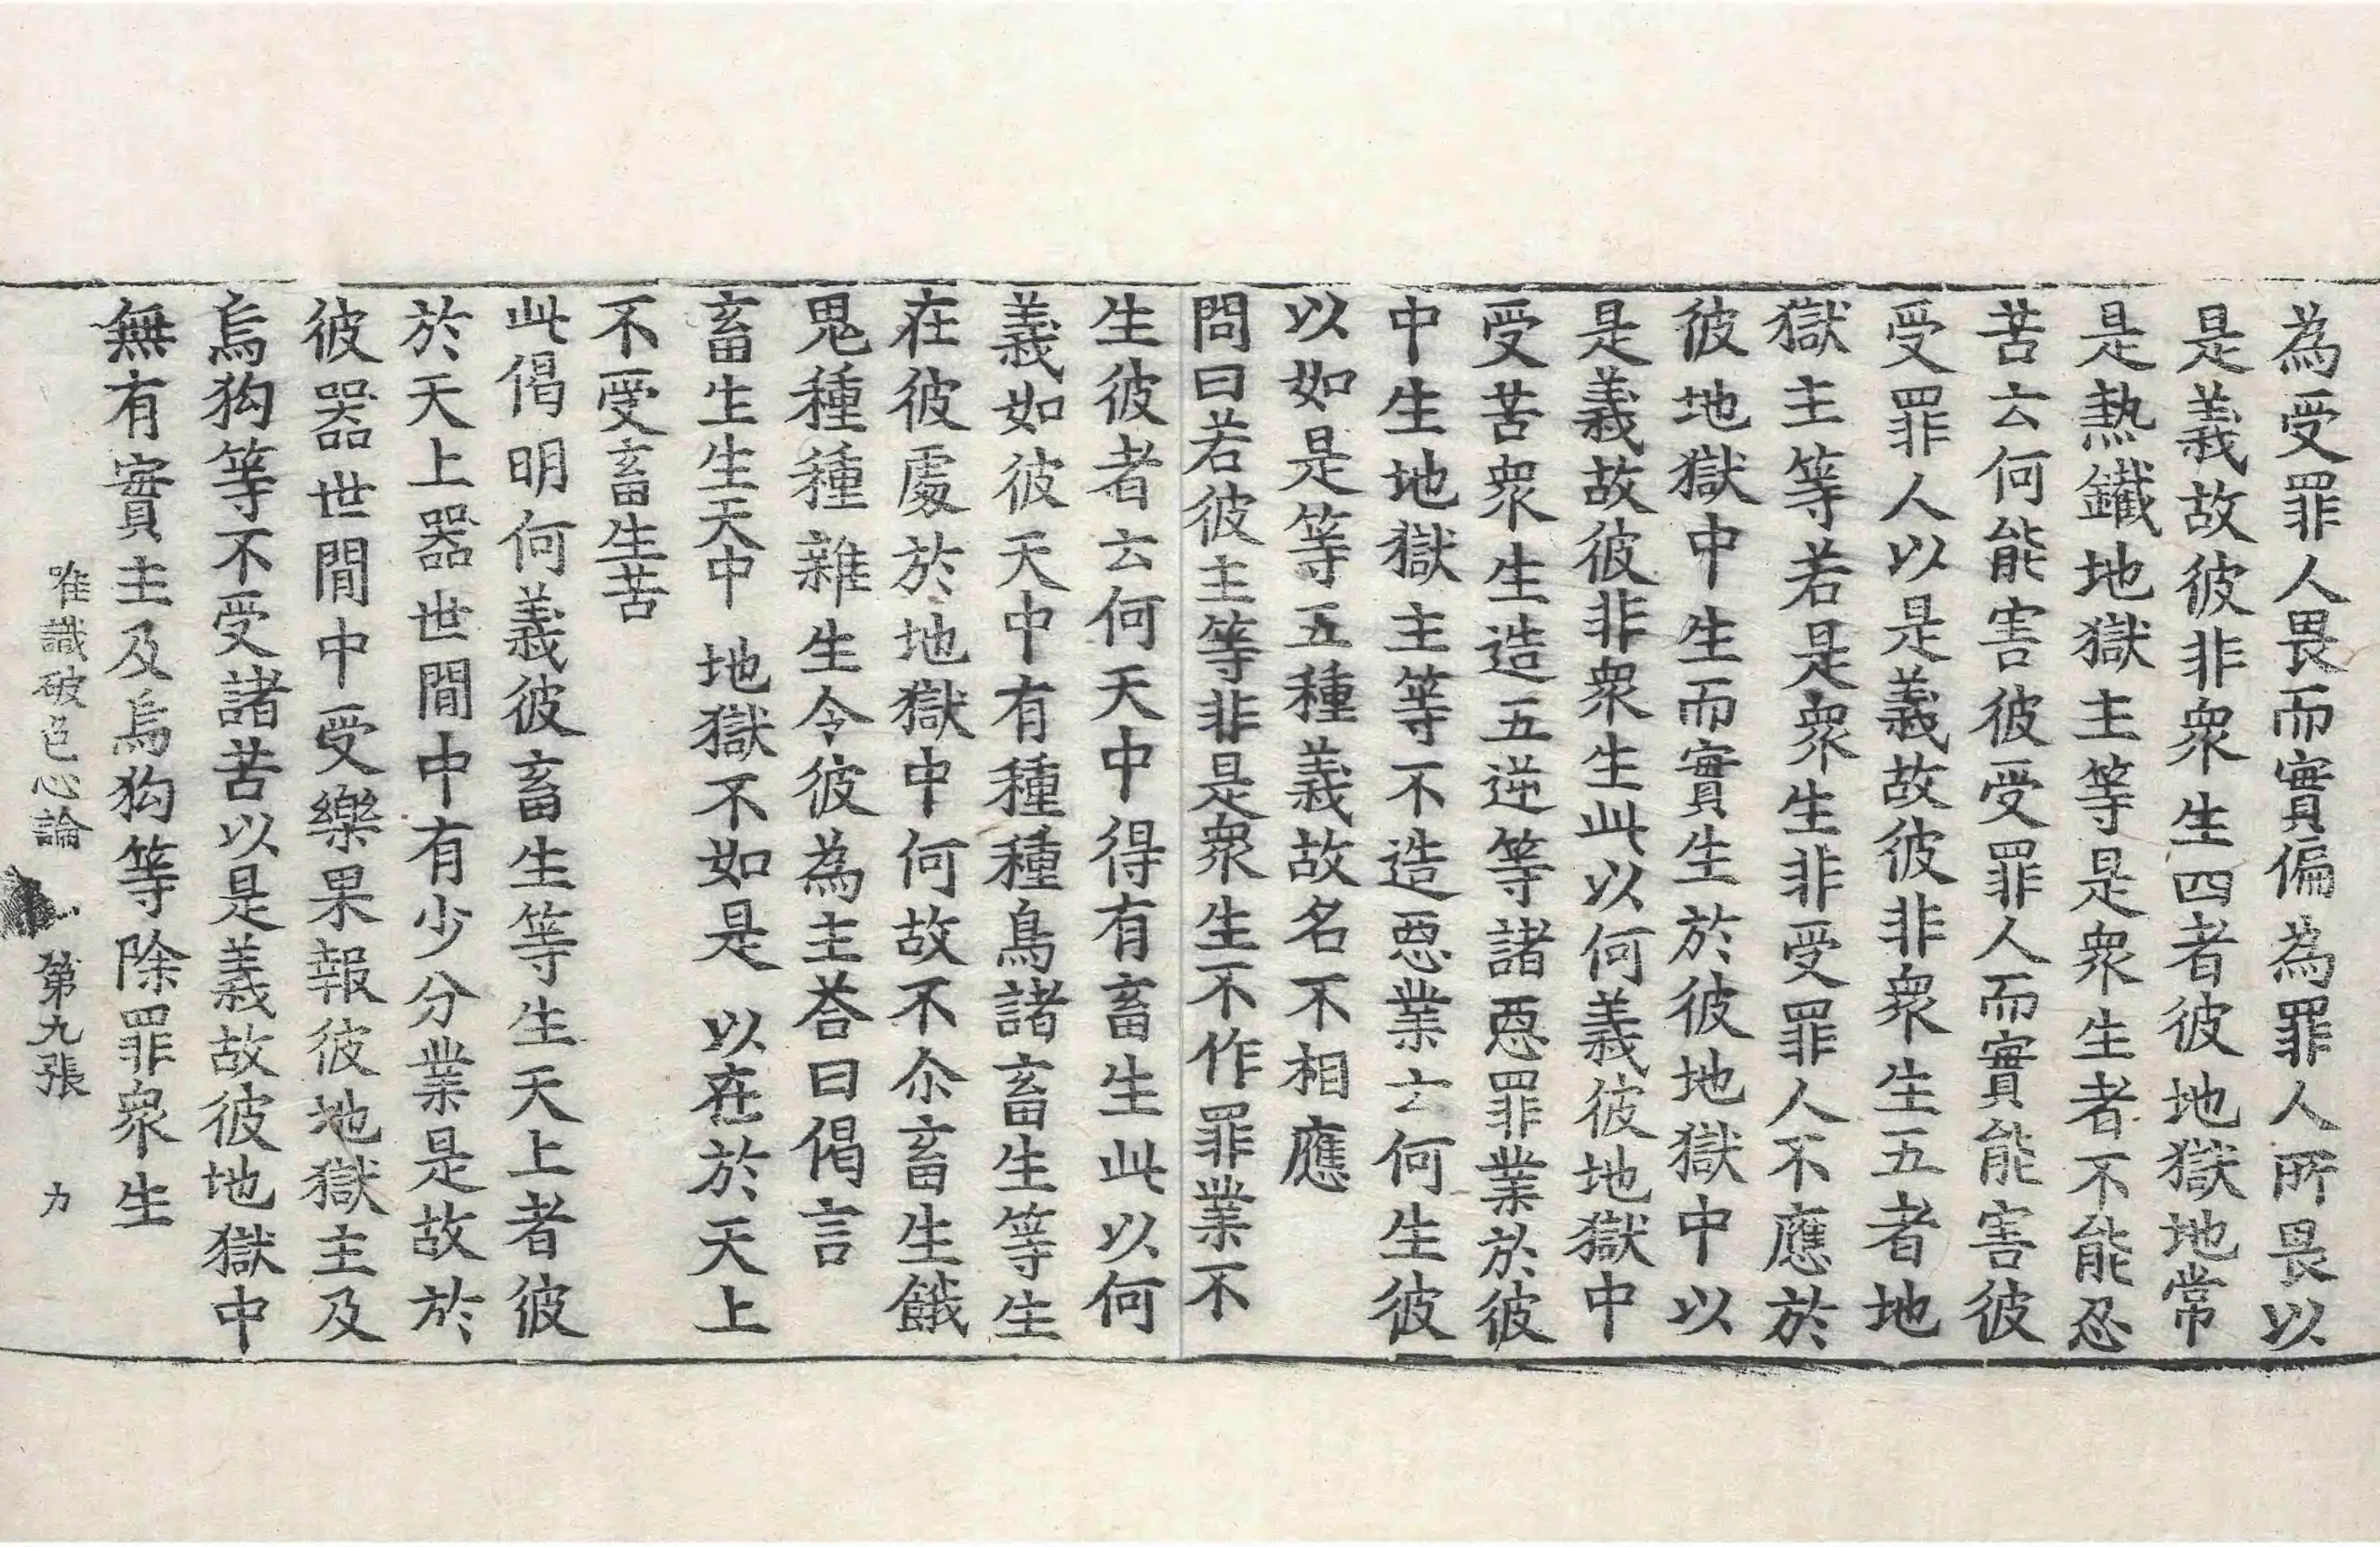 為受罪人畏而實偏為罪人所畏以
是義故彼非衆生四者彼地獄地常
是熱鐵地獄主等是衆生者不能忍
苦云何能害彼受罪人而實能害彼
受罪人以是義故彼非衆生五者地
獄主等若是衆生非受罪人不應於
彼地獄中生而實生於彼地獄中以
是義故彼非衆生此以何義彼地獄中
受苦衆生造五逆等諸惡罪業於彼
中生地獄主等不造惡業云何生彼
以如是等五種義故名不相應
問曰若彼主等非是衆生不作罪業不
生彼者云何天中得有畜生此以何
義如彼天中有種種鳥諸畜生等生
在彼處於地獄中何故不尒畜生餓
鬼種種雜生令彼為主荅曰偈言
畜生生天中　地獄不如是　以在於天上
不受畜生苦
此偈明何義彼畜生等生天上者彼
於天上器世間中有少分業是故於
彼器世間中受樂果報彼地獄主及
烏狗等不受諸苦以是義故彼地獄中
無有實主及烏狗等除罪衆生
唯識破色心論　第九張　力